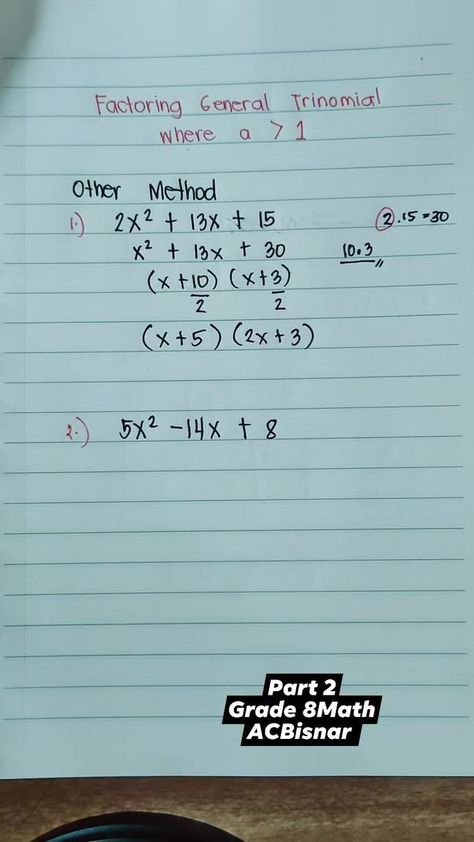 Factoring General Trinomial
where a > 1
Other Method
1.) 2x² + 13x + 15
② .15 = 30
x² + 13x + 30
10 . 3
(x + 10) (x + 3)
2 2
(x + 5) (2x + 3)
2.) 5x² - 14x + 8
Part 2
Grade 8Math
ACBisnar